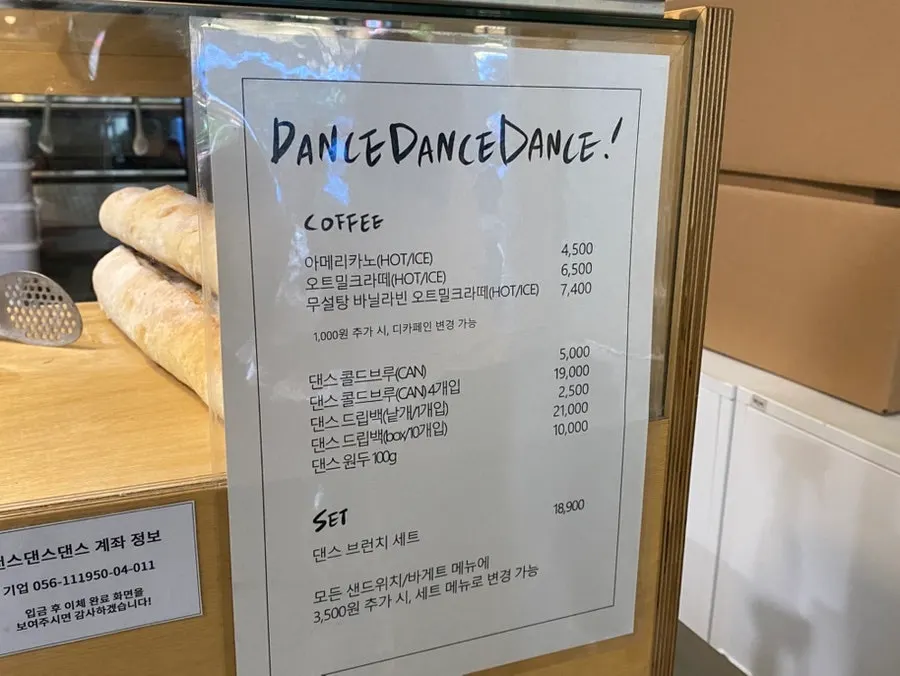 DANCEDANCEDANCE!
COFFEE
아메리카노(HOT/ICE) 4,500
오트밀크라떼(HOT/ICE) 6,500
무설탕 바닐라빈 오트밀크라떼(HOT/ICE) 7,400
1,000원 추가 시, 디카페인 변경 가능
댄스 콜드브루(CAN) 5,000
댄스 콜드브루(CAN) 4개입 19,000
댄스 드립백(낱개/1개입) 2,500
댄스 드립백(box/10개입) 21,000
댄스 원두 100g 10,000
SET
댄스 브런치 세트 18,900
모든 샌드위치/바게트 메뉴에
3,500원 추가 시, 세트 메뉴로 변경 가능
댄스댄스 계좌 정보
기업 056-111950-04-011
입금 후 이체 완료 화면을
보여주시면 감사하겠습니다!